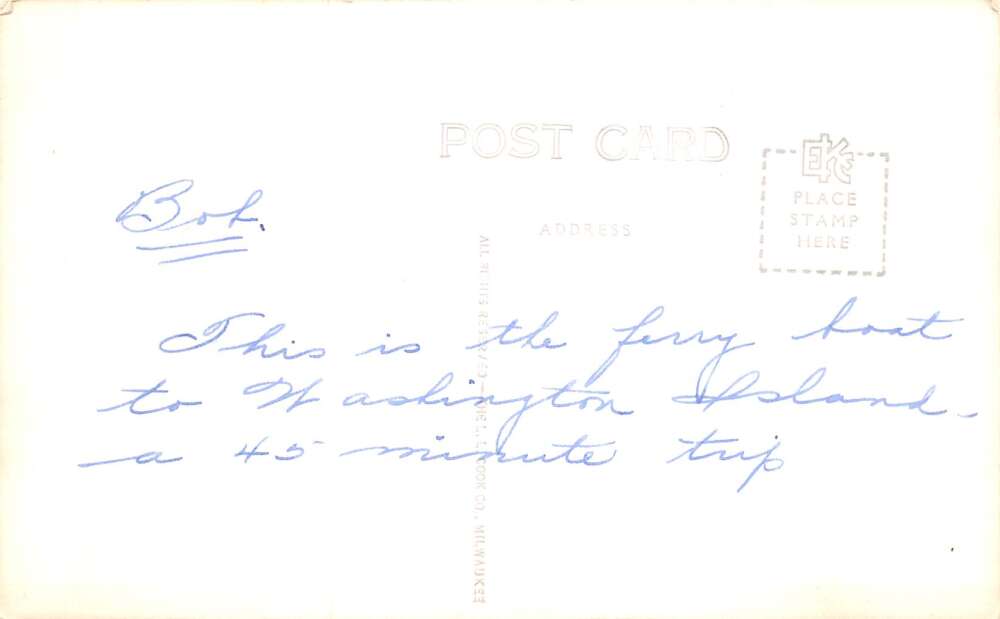 POST CARD
EKC
PLACE
STAMP
HERE
ADDRESS
Bob.
This is the ferry boat
to Washington Island -
a 45 minute trip
ALL RIGHTS RESERVED — THE L. L. COOK CO., MILWAUKEE